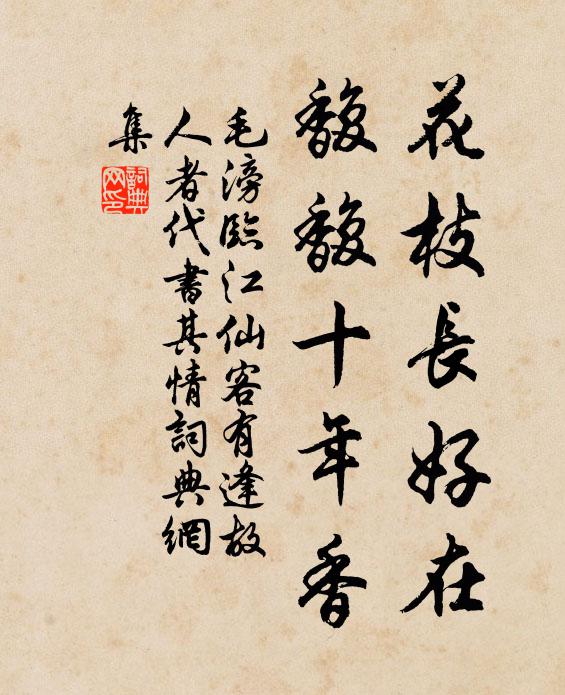 花枝長好在
馥馥十年香
毛滂臨江仙客有逢故
人者代書其情詞典網
集
詞典
网印